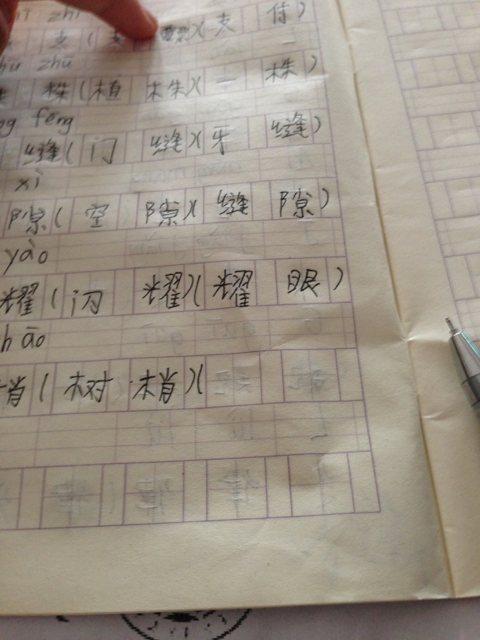 zhī
支(支 )(支 付)
zhū zhū
株 株(植 株)(一 株)
feng
缝(门 缝)(牙 缝)
xì
隙(空 隙)(缝 隙)
yào
耀(闪 耀)(耀 眼)
hāo
梢(树 梢)(